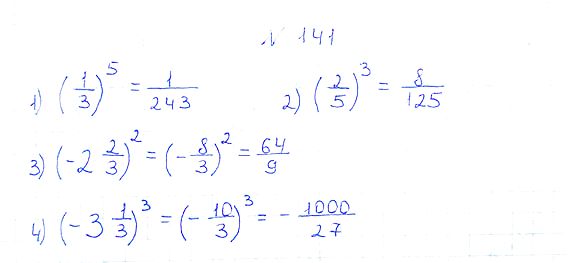 № 141
1) (1/3)^5 = 1/243 2) (2/5)^3 = 8/125
3) (-2 2/3)^2 = (-8/3)^2 = 64/9
4) (-3 1/3)^3 = (-10/3)^3 = -1000/27